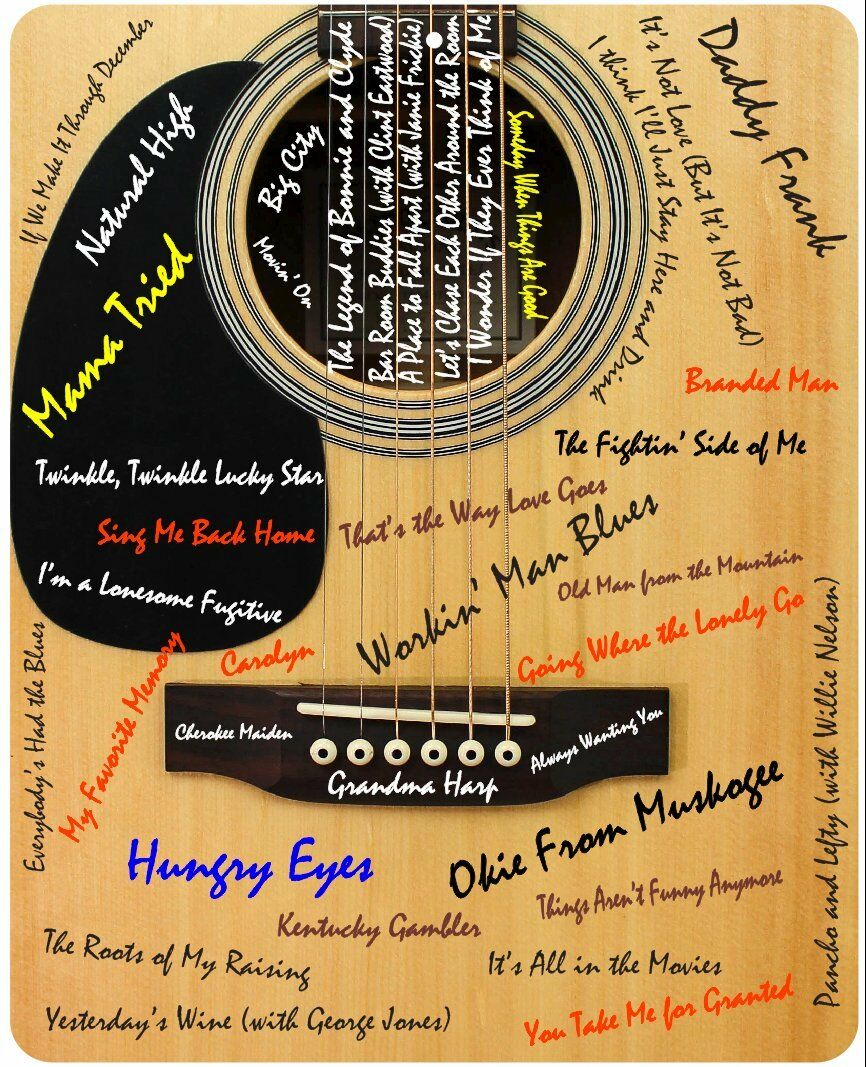 If We Make It Through December
Natural High
Mama Tried
Big City
Movin' On
The Legend of Bonnie and Clyde
Bar Room Buddies (with Clint Eastwood)
A Place to Fall Apart (with Janie Frickie)
Let's Chase Each Other Around the Room
I Wonder If They Ever Think of Me
Someday When Things Are Good
Daddy Frank
It's Not Love (But It's Not Bad)
I think I'll Just Stay Here and Drink
Branded Man
The Fightin' Side of Me
Twinkle, Twinkle Lucky Star
Sing Me Back Home
That's the Way Love Goes
Workin' Man Blues
I'm a Lonesome Fugitive
Old Man from the Mountain
Going Where the Lonely Go
Carolyn
My Favorite Memory
Everybody's Had the Blues
Cherokee Maiden
Grandma Harp
Always Wanting You
Pancho and Lefty (with Willie Nelson)
Hungry Eyes
Okie From Muskogee
Things Aren't Funny Anymore
Kentucky Gambler
The Roots of My Raising
It's All in the Movies
Yesterday's Wine (with George Jones)
You Take Me for Granted